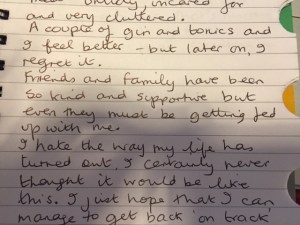 untidy, uncared for
and very cluttered.
A couple of gin and tonics and
I feel better - but later on, I
regret it.
Friends and family have been
so kind and supportive but
even they must be getting fed
up with me.
I hate the way my life has
turned out. I certainly never
thought it would be like
this. I just hope that I can
manage to get back 'on track'